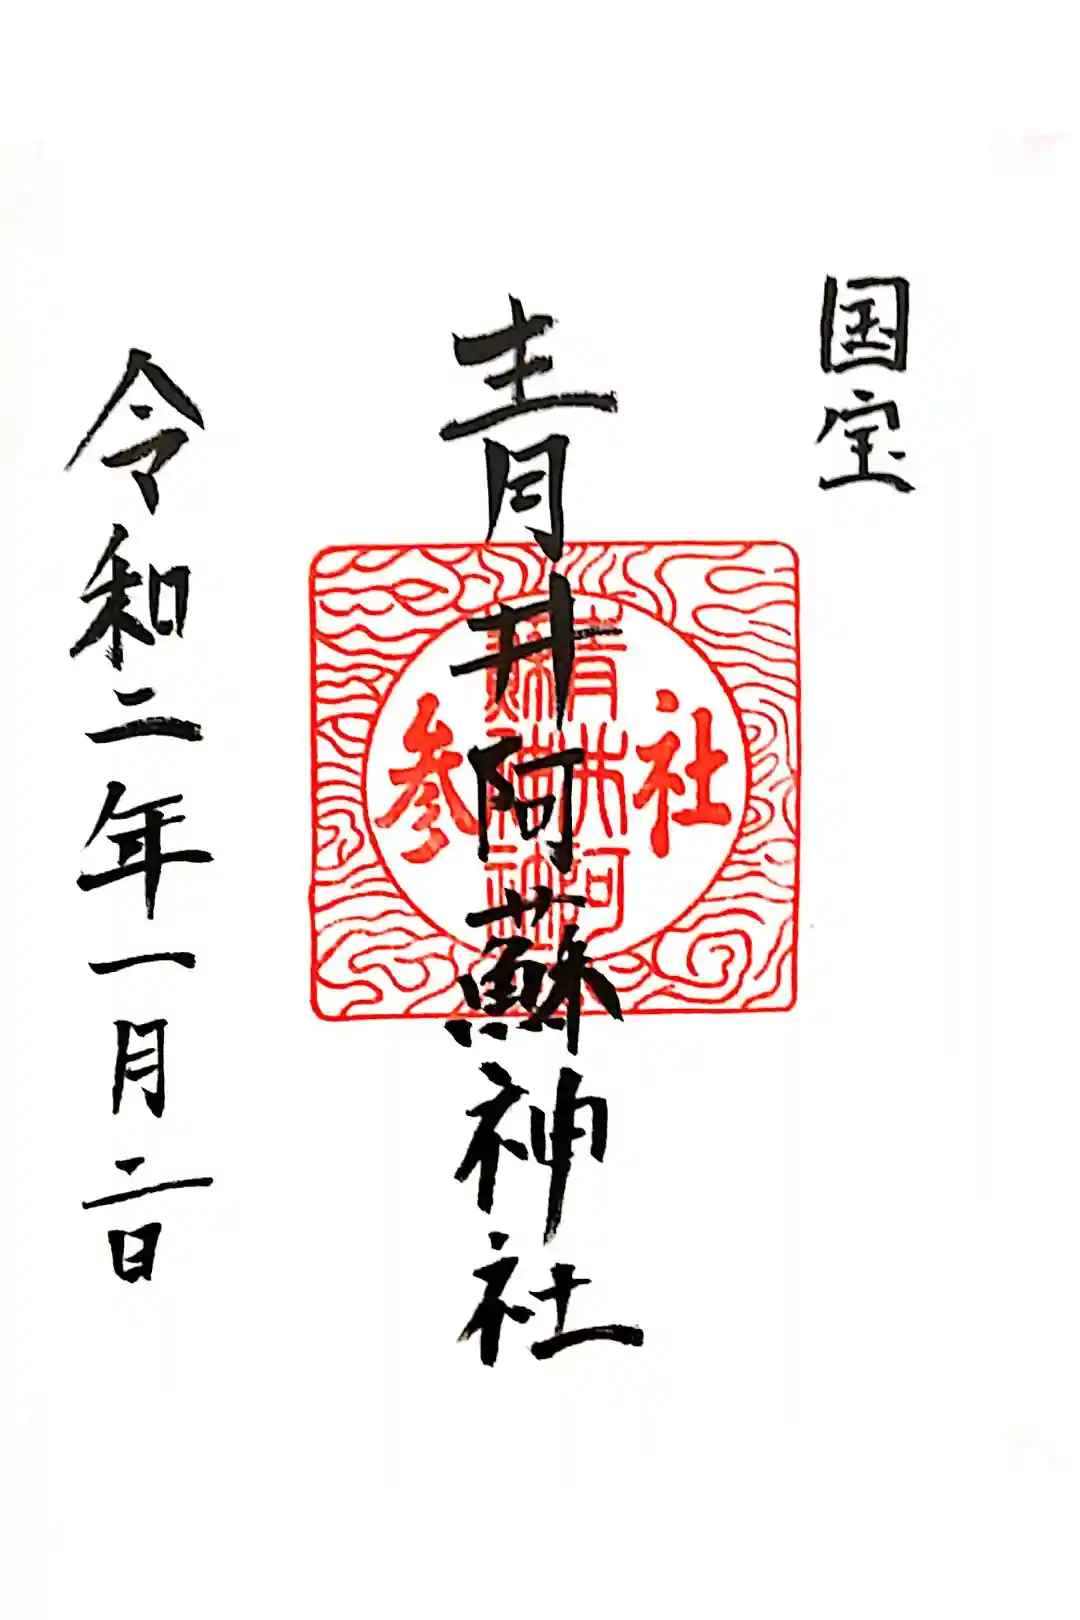 国宝
青井阿蘇神社
社参
青井阿
蘇神社
令和二年一月二日